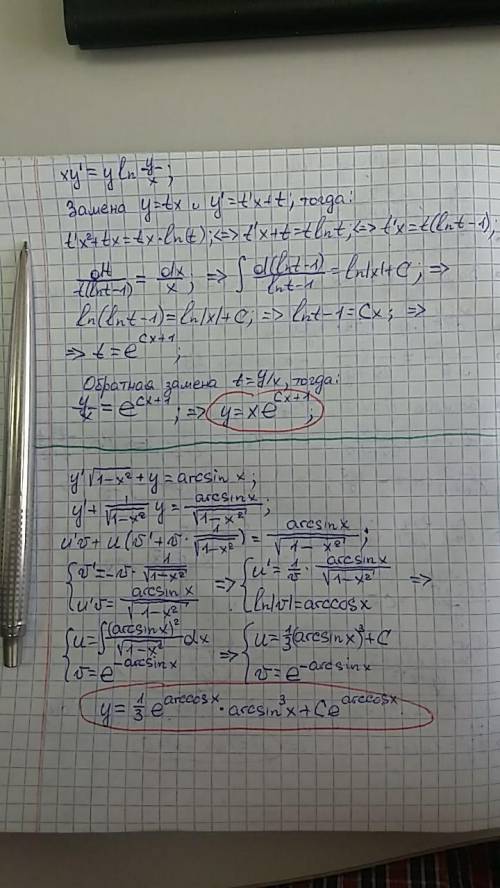 xy' = y ln y/x ;
Замена y=tx и y'=t'x+t, тогда:
t'x²+tx=tx·ln(t); <=> t'x+t=t ln t; <=> t'x=t(ln t-1);
dt/(t(ln t-1)) = dx/x ; => ∫ d(ln t-1)/(ln t-1) = ln|x|+C; =>
ln(ln t-1)=ln|x|+C; => ln t-1=Cx; =>
=> t=e^(Cx+1) ;
Обратная замена t=y/x, тогда:
y/x = e^(Cx+1) ; => y=xe^(Cx+1) ;
y'√(1-x²)+y=arcsin x;
y'+ 1/√(1-x²) y = arcsin x/√(1-x²) ;
u'v+u(v'+v· 1/√(1-x²)) = arcsin x/√(1-x²) ;
{ v'=-v· 1/√(1-x²) => { u'= 1/v · arcsin x/√(1-x²) =>
{ u'v= arcsin x/√(1-x²) { ln|v|=arccos x
{ u=∫ (arcsin x)²/√(1-x²) dx => { u= 1/3 (arcsin x)³+C
{ v=e^(-arcsin x) { v=e^(-arcsin x)
y= 1/3 e^(arccos x) · arcsin³x+Ce^(arccos x)